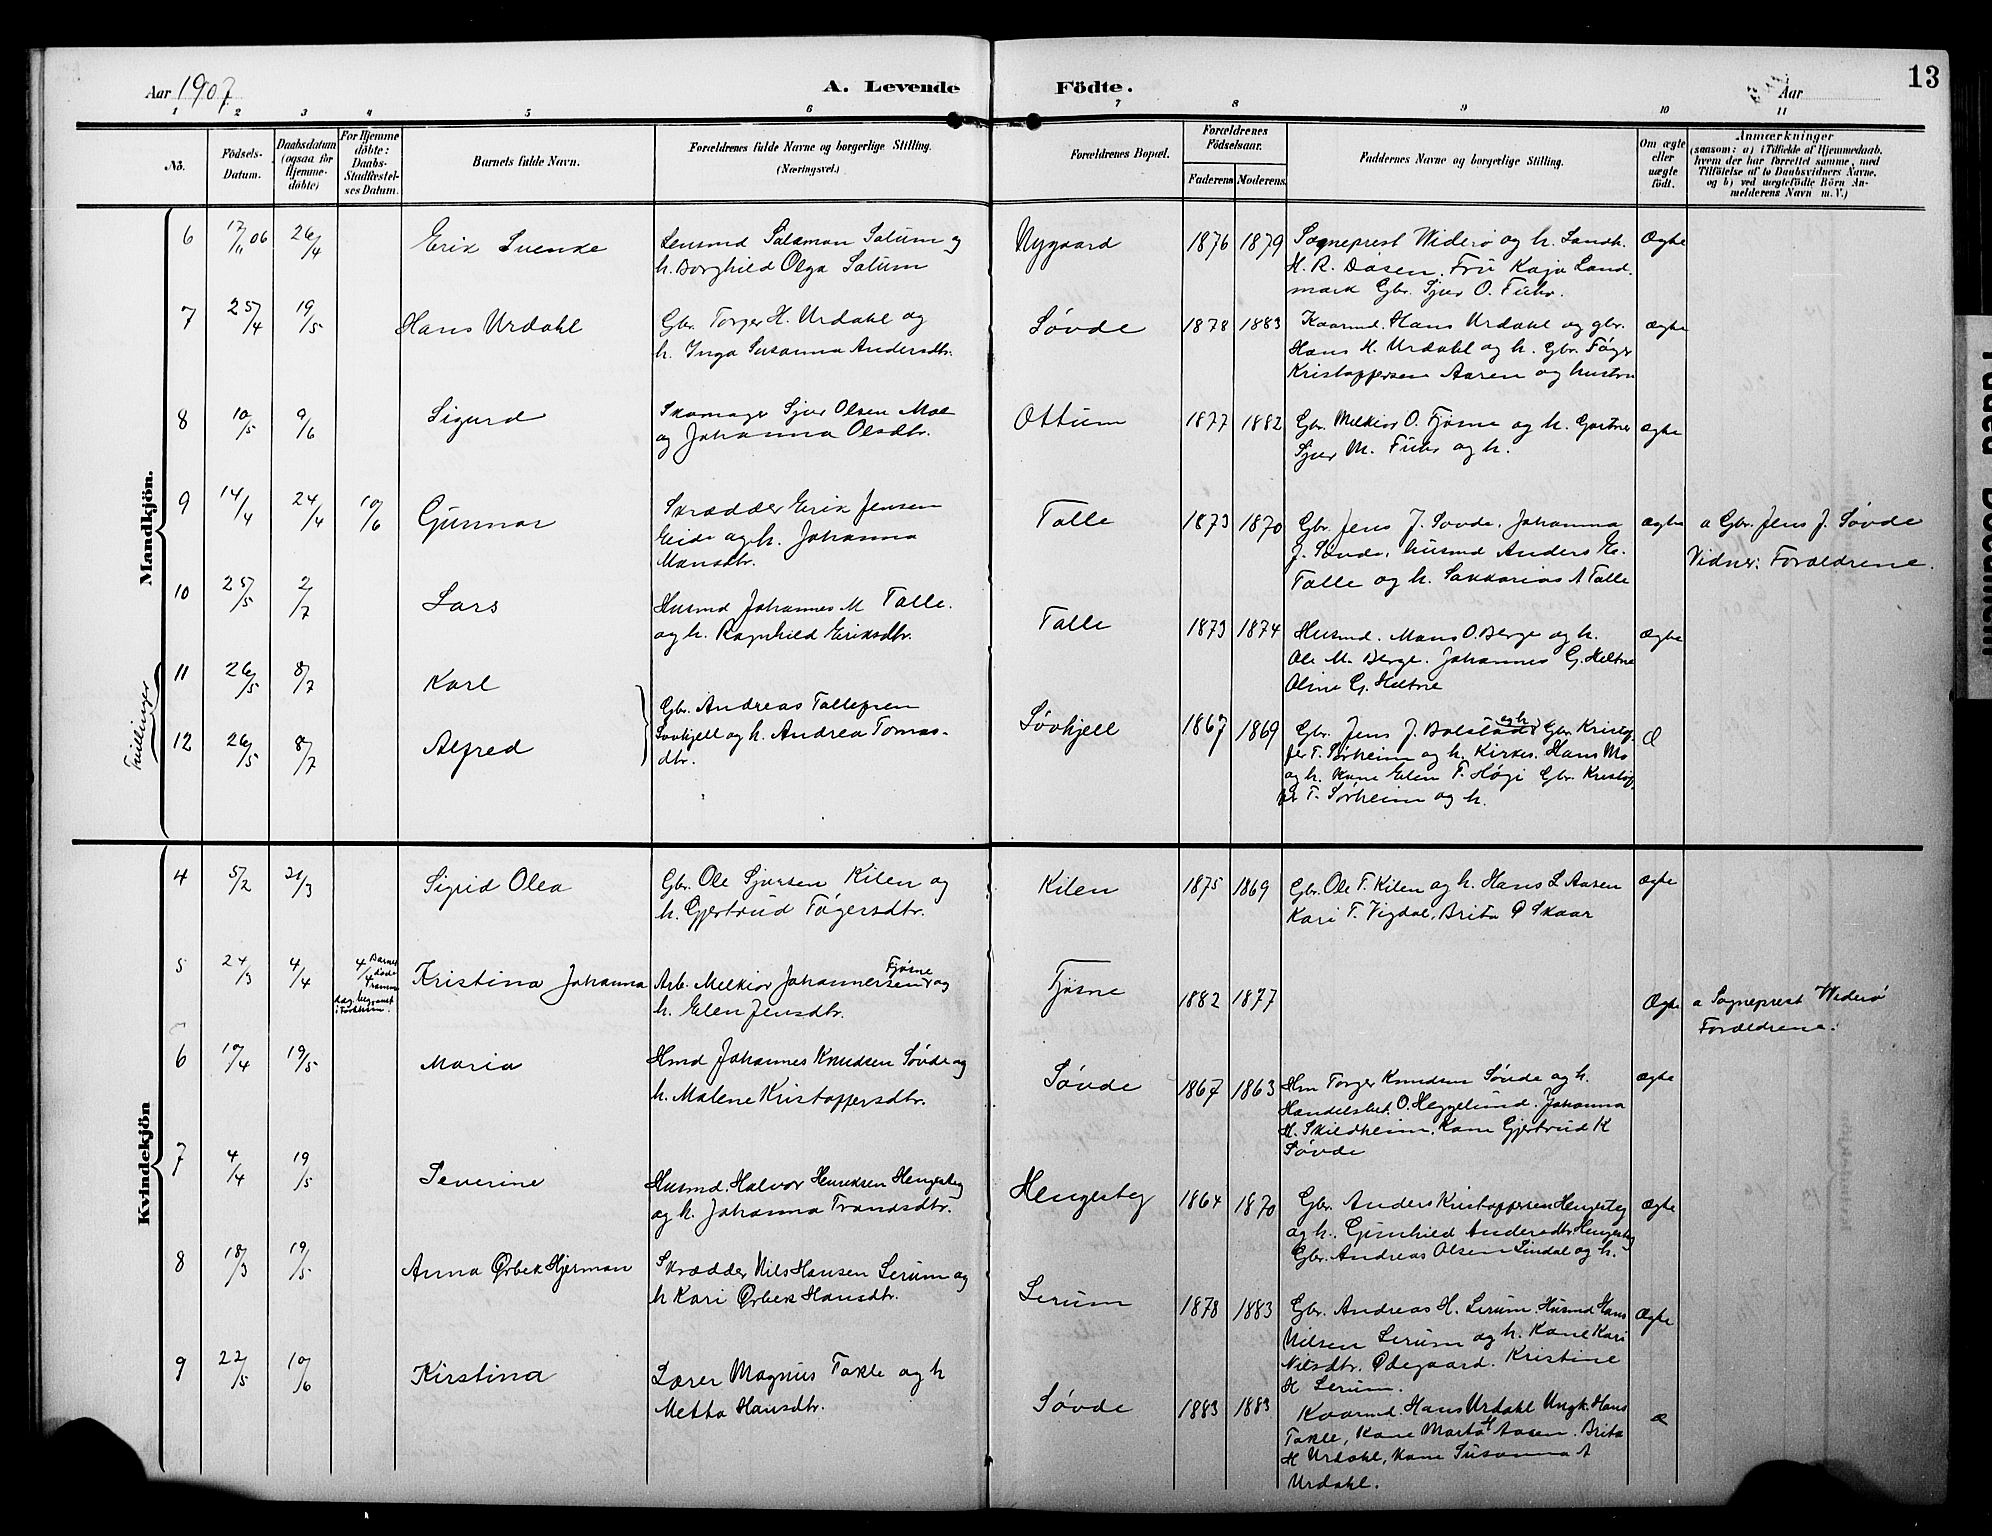 Aar 1907
A. Levende
Födte.
Aar
13
1 2 3 4 5 6 7 8 9 10 11
Nö.
Födsels-
Datum.
Daabsdatum
(ogsaa for
Hjemme-
døbte)
For Hjemme
döbte:
Daabs-
Stadfæstel-
ses Datum.
Barnets fulde Navn.
Forældrenes fulde Navne og borgerlige Stilling.
(Næringsvei.)
Forældrenes Bopæl.
Forældrenes
Födselsaar.
Faderens
Moderens
Faddernes Navne og borgerlige Stilling.
Om ægte
eller
uægte
födt.
Anmærkninger
(saasom: a) i Tilfælde af Hjemmedaab,
hvem der har forrettet samme, med
Tilföielse af to Daabsvidners Navne,
og b) ved uægtefödte Börn An-
melderens Navn m. V.)
Mandkjön.
6 17/11 06 26/4 Erik Svenke
Lensmd Salamon Salum og
h. Borghild Olga Salum
Nygaard 1876 1879
Sogneprest Widerö og h. Landh.
H. R. Døsen, Fru Kaja Land
mark Gbr. Sjur O. Fuhr.
Ægte
7 25/4 19/5 Hans Urdahl
Gbr. Torger H. Urdahl og
h. Inga Susanna Andersdtr.
Søvde 1878 1883
Kaarmd. Hans Urdahl og gbr.
Hans H. Urdahl og h. Gbr. Tøger
Kristoffersen Aasen og hustru
ægte
8 10/5 9/6 Sigurd
Skomager Sjur Olsen Moe
og Johanna Olsdtr.
Ottum 1877 1882
Gbr. Melkior O. Fjøsne og h. Gartner
Sjur M. Fuhr og h.
ægte
9 14/4 24/4 10/6 Gunnar
Skrædder Erik Jensen
Eide og h. Johanna
Monsdtr.
Talle 1873 1870
Gbr. Jens J. Søvde, Johanna
J. Søvde, husmd Anders E.
Talle og h. Sakkarias A Talle
ægte
a Gbr. Jens J. Søvde
Vidner: Forældrene.
10 25/5 2/7 Lars
Husmd Johannes M Talle.
og h. Ragnhild Eriksdtr.
Talle 1873 1874
Husmd. Mons O. Berge og h.
Ole M. Berge. Johannes G. Heltne
Oline G. Heltne
ægte
Tvillinger
11 26/5 8/7 Karl
12 26/5 8/7 Alfred
Gbr. Andreas Tollefsen
Søvhjell og h. Andrea Tomas-
dtr.
Søvhjell 1867 1869
Gbr. Jens J. Bolstad og h. Gbr Kristof
fer T. Sørheim og h. Kirkes. Hans Mo
og h. Kone Elen T. Høgi Gbr. Kristof
fer T. Sørheim og h.
Æ
Kvindekjön
4 5/2 31/3 Sigrid Olea
Gbr. Ole Sjursen Kilen og
h. Gjertrud Tøgersdtr.
Kilen 1875 1869
Gbr. Ole T. Kilen og h. Hans L Aasen
Kari T. Vigdal, Brita O Skaar
Ægte
5 24/3 4/4 4/4 Kristina Johanna
Arb. Melkior Johannessen Fjøsne og
h. Elen Jensdtr.
Fjøsne 1882 1877
Ægte
a Sogneprest Widerö
Forældrene.
6 10/4 19/5 Maria
Hmd Johannes Knudsen Søvde og
h. Malene Kristoffersdtr.
Søvde 1867 1863
Hm Torger Knudsen Søvde og h.
Handelsbet. O. Heggelund. Johanna
H. Skildheim, Kone Gjertrud K
Søvde
Ægte
7 4/4 19/5 Severine
Husmd. Halvor Henriksen Hengesteg
og h. Johanna Trondsdtr.
Hengesteg 1864 1870
Gbr. Anders Kristoffersen Hengesteg
og h. Gunhild Andersdtr Hengesteg
Gbr. Andreas Olsen Lindal og h.
Ægte
8 18/3 19/5 Anna Ørbek Hjerman
Skrædder Nils Hansen Serum og
h Kari Ørbek Hansdtr.
Serum 1878 1883
Gbr. Andreas H. Serum. Husmd Hans
Nilsen Serum og h. Kone Kari
Nilsdtr. Ødegaard. Kristine
H Serum.
Ægte
9 22/5 10/6 Kirstina
Lærer Magnus Takle og h
Metta Hansdtr.
Søvde 1883 1883
Kaarmd. Hans Urdahl Ungk. Hans
Takle, Kone Marta H Aasen. Brita
H Urdahl, Kone Susanna A
Urdahl.
æ